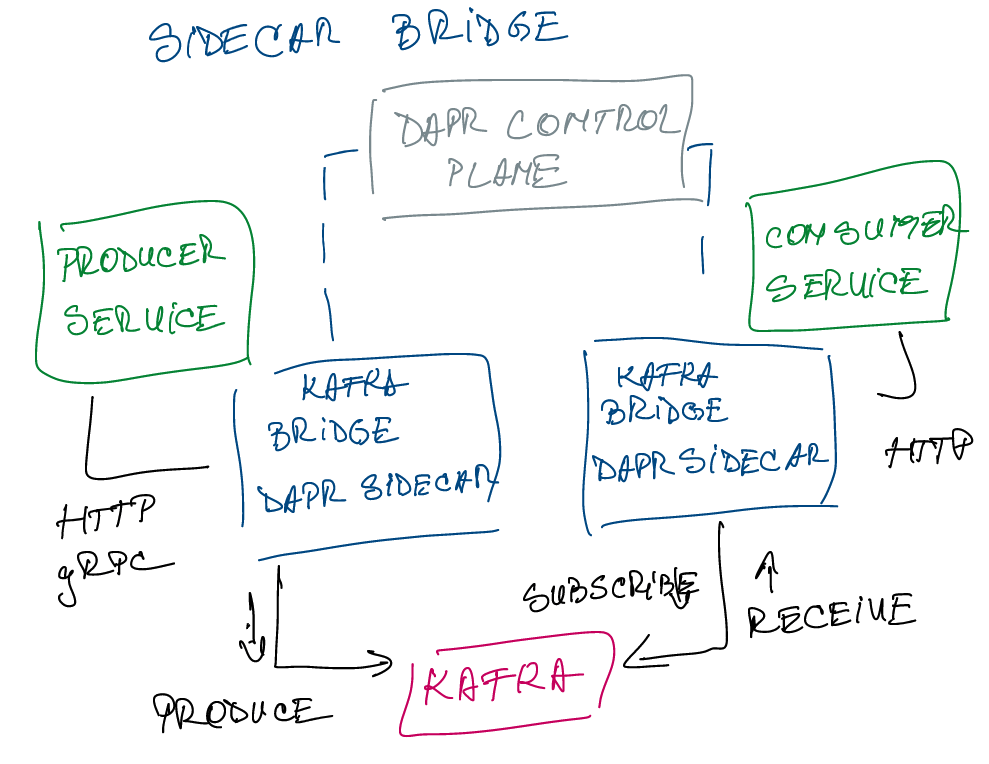 SIDECAR BRIDGE
DAPR CONTROL
PLANE
PRODUCER
SERVICE
CONSUMER
SERVICE
KAFKA
BRIDGE
DAPR SIDECAR
KAFKA
BRIDGE
DAPR SIDECAR
HTTP
HTTP
gRPC
SUBSCRIBE
RECEIVE
KAFKA
PRODUCE